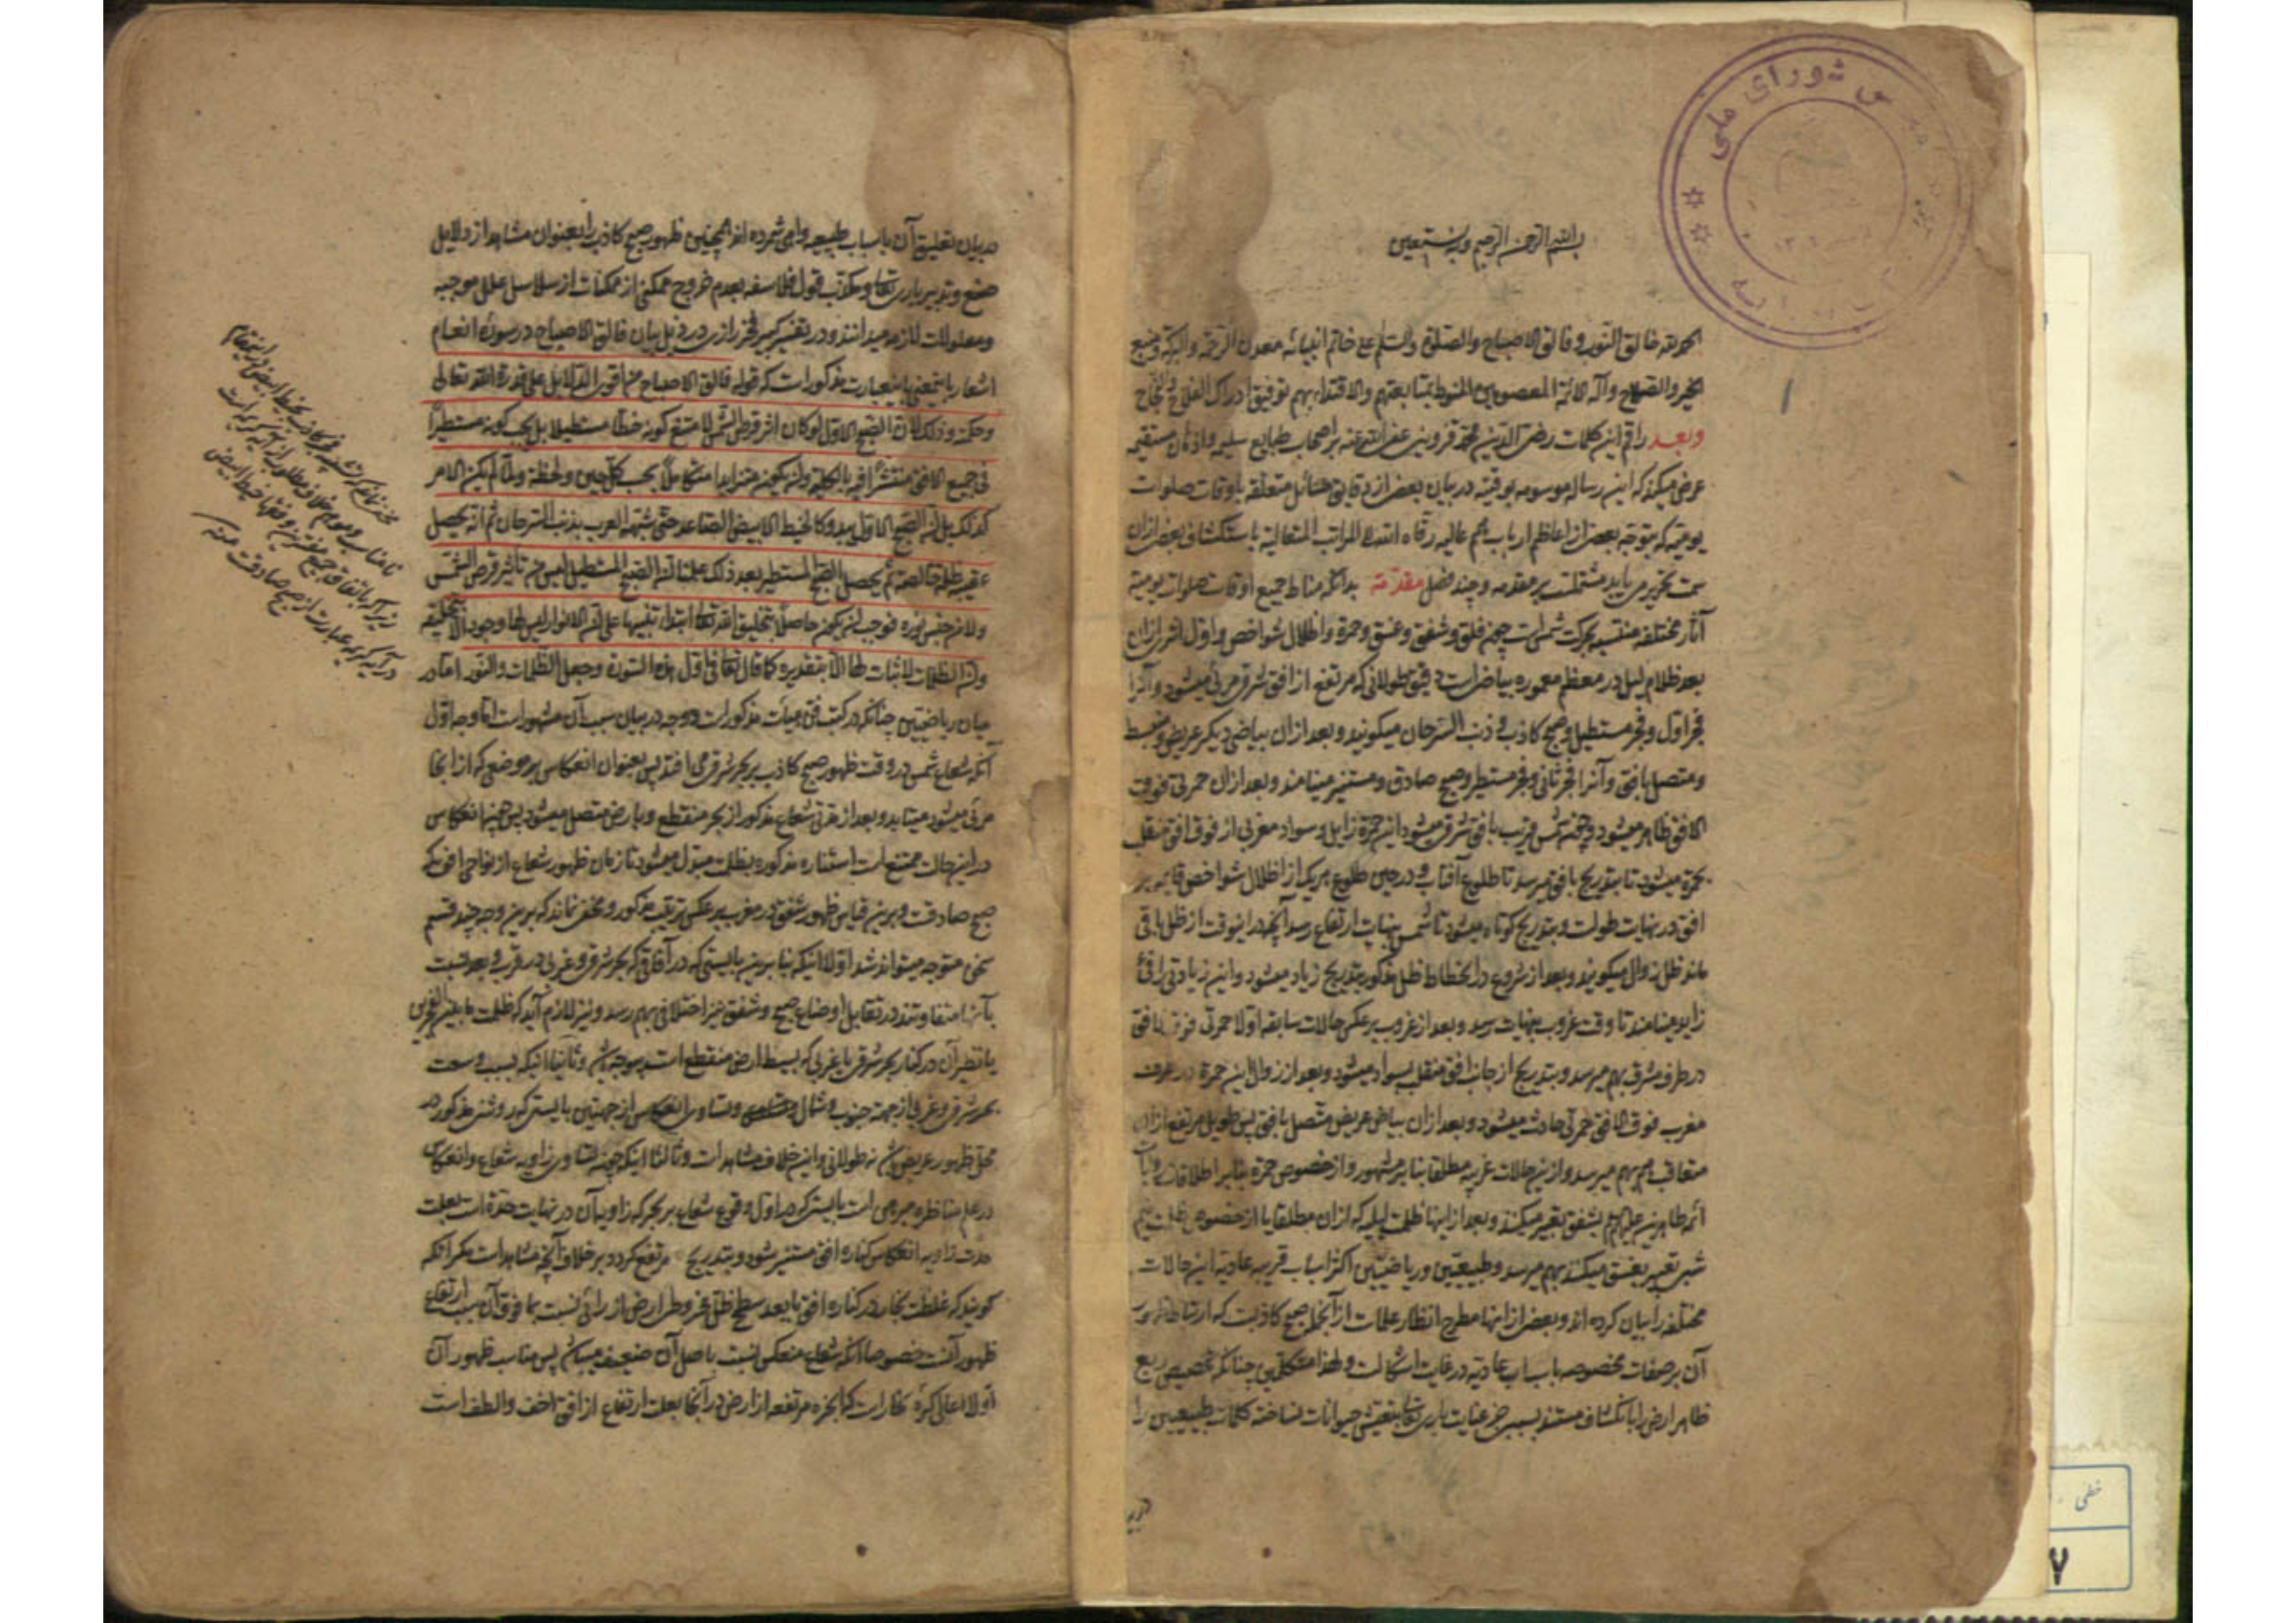 بسم الله الرحمن الرحیم وبه نستعین
الحمد لله خالق النور و فالق الاصباح والصلوة والسلم علی خاتم انبیائه معدن الرحمة والبرکة ومنبع
الخیر والصلاح وآله الائمة المعصومین المنوط بمتابعتهم والاقتداء بهم توفیق ادراک الفلاح والنجاح
وبعد راقم این کلمات رضی الدین محمد قزوینی عفی الله عنه بر اصحاب طبایع سلیمه و اذهان مستقیمه
عرض میکند که این رساله موسومه بوقتیه در بیان بعضی از دقایق مسائل متعلقه باوقات صلوات
یومیه که بتوجه بعضی از اعاظم ارباب همم عالیه رقاه الله الی المراتب المتعالیة باستکشاف بعضی ازان
سمت تحریر می یابد مشتملست بر مقدمه و چند فصل مقدمة بدانکه مناط جمیع اوقات صلوات یومیه
آثار مختلفه منتسبه بحرکت شمس است چون فلق و شفق و غسق و حمرة و اظلال شواخص و اول اثری ازان
بعد ظلام لیل در معظم معموره بیاض است دقیق طولانی که مرتفع از افق شرقی مرئی میشود و آنرا
فجر اول و فجر مستطیل و صبح کاذب و ذنب السرحان میگویند و بعد ازان بیاضی دیگر عریض و منبسط
و متصل بافق و آنرا فجر ثانی و فجر مستطیر و صبح صادق و مستنیر مینامند و بعد ازان حمرتی فوق
الافق ظاهر میشود و چون شمس قریب بافق شرقی میشود این حمرة زایل و سواد مغربی از فوق افق منقلب
بحمرة میشود تا بتدریج بافق میرسد تا طلوع آفتاب و در حین طلوع هر یک از اظلال شواخص قایمه بر
افق در نهایت طولست و بتدریج کوتاه میشود تا شمس بنهایت ارتفاع رسد آنچه در اینوقت از ظل باقی
ماند ظل زوال میگویند و بعد از شروع در انحطاط ظل مذکور بتدریج زیاد میشود و این زیادتی را فئ
زاید مینامند تا وقت غروب بنهایت رسد و بعد از غروب بر عکس حالات سابقه اولا حمرتی فوق الافق
در طرف مشرق بهم میرسد و بتدریج از جانب افق منقلب بسواد میشود و بعد از زوال این حمرة در طرف
مغرب فوق الافق حمرتی حادث میشود و بعد ازان بیاض عریض متصل بافق پس طویل مرتفع ازان
متعاقب هم بهم میرسد و از این حالات غربیه مطلقا بنا بر مشهور و از خصوص حمره بنا بر اطلاقات
ائمه طاهرین علیهم السلام بشفق تعبیر میکنند و بعد از اینها ظلمت لیلیه که ازان مطلقا یا از خصوص ظلمت نیم
شبی تعبیر بغسق میکنند بهم میرسد و طبیعیین و ریاضیین اکثر اسباب قریبه عادیه این حالات
مختلفه را بیان کرده اند و بعضی از انها مطرح انظار علماست از آنجمله صبح کاذبست که ارتباط ظهور
آن بر صفات مخصوصه باسباب عادیه در غایت اشکالست و لهذا متکلمین چنانکه تخصیص ربع
ظاهر ارض را بانکشاف مستند بمحض عنایت باری تعالی بتعیش حیوانات ساخته کلمات طبیعیین را
در بیان
در بیان تعلیق آن باسباب طبیعیه واهی شمرده اند همچنین ظهور صبح کاذب را بعنوان مشاهد از دلایل
صنع و تدبیر باری تعالی و مکذب قول فلاسفه بعدم خروج ممکنی از ممکنات از سلاسل علل موجبه
و معلولات لازمه میدانند و در تفسیر کبیر فخر رازی در ذیل بیان فالق الاصباح در سورۀ انعام
اشعار باینمعنی باینعبارت مذکور است که قوله فالق الاصباح من اقوی الدلایل علی قدرة الله تعالی
وحکمته وذلک لان الصبح الاول لو کان اثر قرص الشمس لامتنع کونه خطا مستطیلا بل یجب کونه مستطیرا
فی جمیع الافق منتشرا فیه بالکلیة وان یکون متزایدا متکاملا بحسب کل حین ولحظة ولما لم یکن الامر
کذلک بل ان الصبح الاول یبدو کالخیط الابیض الصاعد حتی شبهه العرب بذنب السرحان ثم انه یحصل
عقیبه ظلمة خالصة ثم یحصل الصبح المستطیر بعد ذلک علمنا ان الصبح المستطیل لیس من تاثیر قرص الشمس
ولا من جنس نوره فوجب ان یکون حاصلا بتخلیق الله تعالی ابتداء تنبیها علی ان الانوار لیس لها وجود الا بتخلیقه
وان الظلمات لا ثبات لها الا بتقدیره کما قال تعالی فی اول هذه السورة وجعل الظلمات والنور اما در
میان ریاضیین چنانکه در کتب فن هیأت مذکور است دو وجه در بیان سبب آن مشهور است اما وجه اول
آنکه شعاع شمس در وقت ظهور صبح کاذب بر بحر شرقی می افتد پس بعنوان انعکاس بر موضعی که از انجا
مرئی میشود میتابد و بعد از مدتی شعاع مذکور از بحر منقطع و بارض متصل میشود پس چون انعکاس
در این حالت ممتنع است استناره مذکوره بظلمت مبدل میشود تا زمان ظهور شعاع از نواحی افق که
صبح صادقست و برین قیاس ظهور شفق در مغرب بر عکس ترتیب مذکور و مخفی نماند که برین وجه چند قسم
سخن متوجه میتواند شد اولا اینکه بنا برین بایستی که در آفاقی که بحر شرقی و غربی در قرب و بعد نسبت
بآنها متفاوتند در تقابل اوضاع صبح و شفق نیز اختلافی بهم رسد و نیز لازم آید که ظلمت ما بین الفجرین
یا نظیر آن در کنار بحر شرقی یا غربی که بسیط ارض منقطع است موجود نباشد و ثانیا اینکه بسبب وسعت
بحر شرقی و غربی از جهة جنوب و شمال و تساوی انعکاس از جهتین بایستی که روشنی مذکور در
محل ظهور عریض باشد نه طولانی و این خلاف مشاهد است و ثالثا اینکه چون تساوی زاویه شعاع و انعکاس
در علم مناظره مبرهن است بایستی که در اول وقوع شعاع بر بحر که زاویه آن در نهایت حدة است بعلت
حدت زاویه انعکاس کناره افق مستنیر شود و بتدریج مرتفع گردد بر خلاف آنچه مشاهد است مگر آنکه
گویند که غلظت بخار در کناره افق یا بعد سطح ظل مخروطی ارض از رائی نسبت بما فوق آن سبب ارتفاع
ظهور آنست خصوصا آنکه شعاع منعکس نسبت باصل آن ضعیف میباشد پس مناسب ظهور آن
اولا اعالی کره بخار است که ابخره مرتفعه از ارض در آنجا بعلت ارتفاع از افق اخف و الطف است
خطی
۷